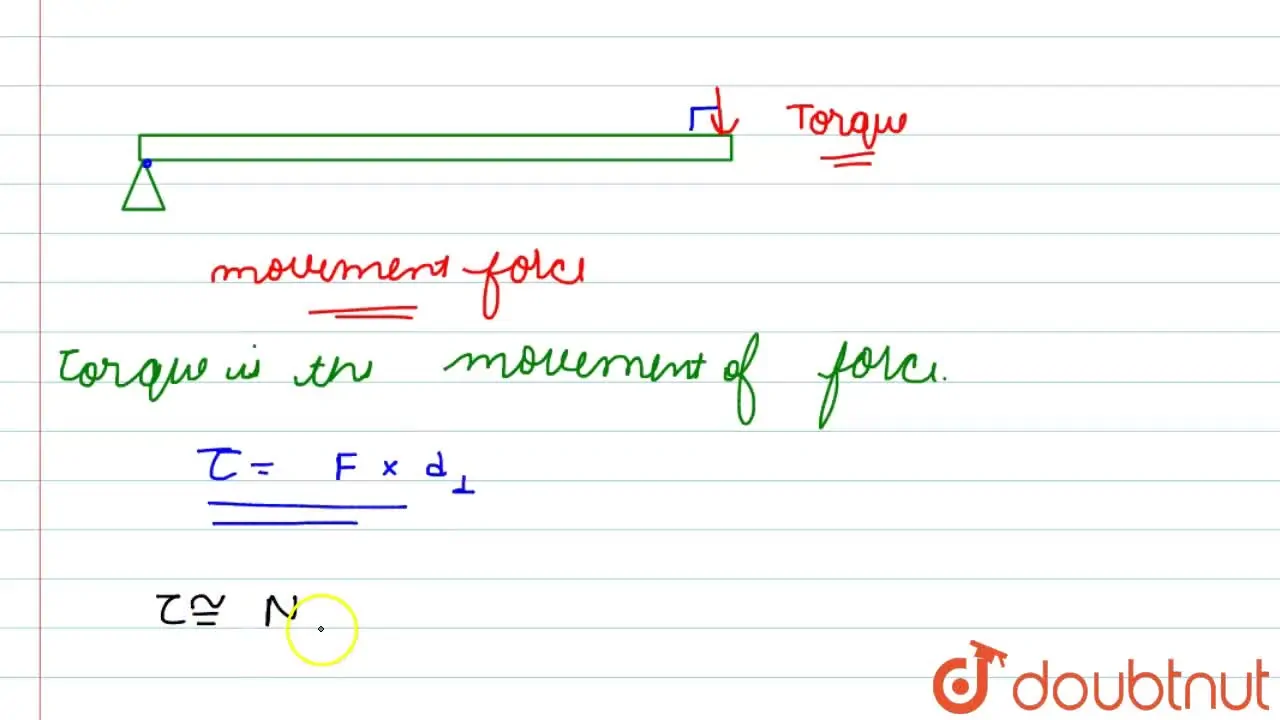 Torque
movement force
Torque is the movement of force.
τ = F × d⊥
τ ≅ N
doubtnut